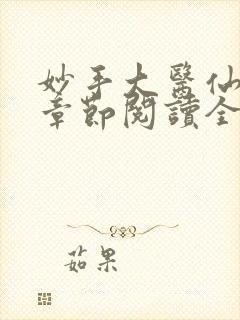 妙手大醫仙
章節閱讀全
茹果